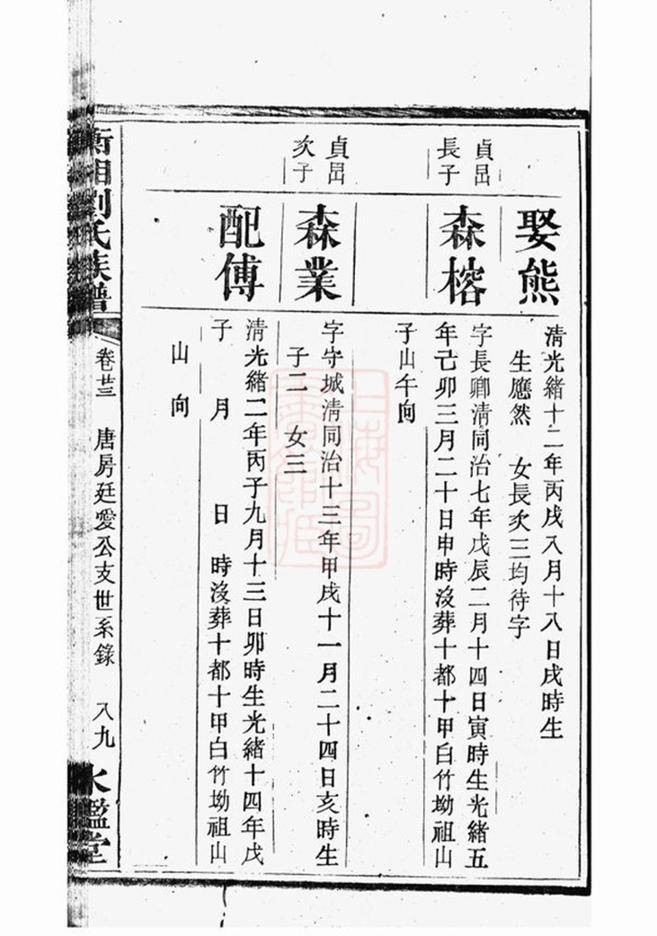 娶熊
清光緒十二年丙戌八月十八日戌時生
生應然　女長次三均待字
貞嵒
長子
森榕
字長卿清同治七年戊辰二月十四日寅時生光緒五
年己卯三月二十日申時沒葬十都十甲白竹坳祖山
子山午向
貞嵒
次子
森業
字守城清同治十三年甲戌十一月二十四日亥時生
子二　女三
配傅
清光緒二年丙子九月十三日卯時生光緒十四年戊
子　月　　日　時沒葬十都十甲白竹坳祖山
山向
衡湘劉氏族譜
卷廿三　唐房廷愛公支世系錄　八九
水鑑堂